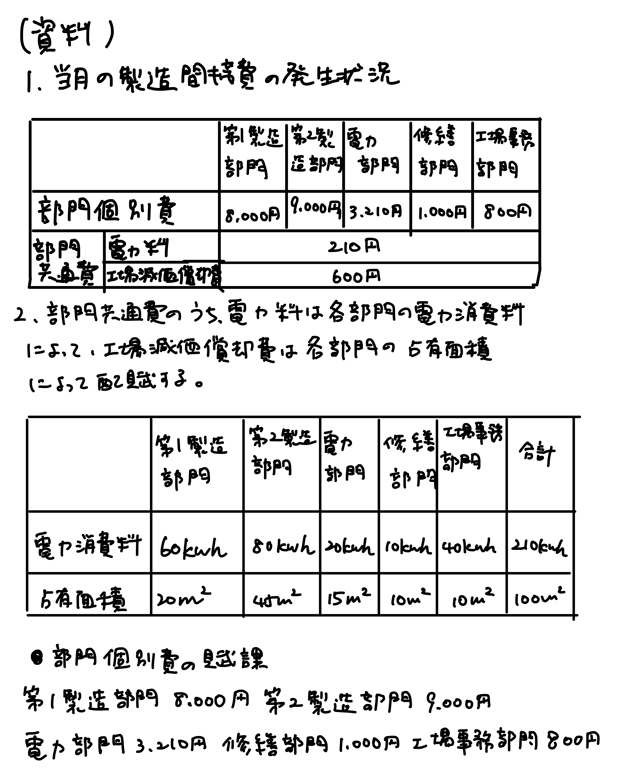 (資料)
1. 当月の製造間接費の発生状況
第1製造部門 第2製造部門 電力部門 修繕部門 工場事務部門
部門個別費 8.000円 9.000円 3.210円 1.000円 800円
部門共通費 電力料 210円
工場減価償却費 600円
2、部門共通費のうち、電力料は各部門の電力消費料
によって、工場減価償却費は各部門の占有面積
によって配賦する。
第1製造部門 第2製造部門 電力部門 修繕部門 工場事務部門 合計
電力消費料 60kwh 80kwh 20kwh 10kwh 40kwh 210kwh
占有面積 20m² 45m² 15m² 10m² 10m² 100m²
● 部門個別費の賦課
第1製造部門 8.000円 第2製造部門 9.000円
電力部門 3.210円 修繕部門 1.000円 工場事務部門 800円